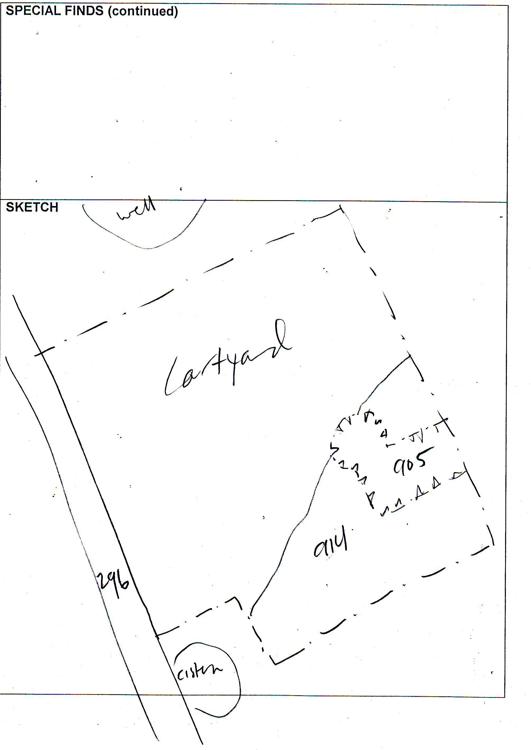 SPECIAL FINDS (continued)
SKETCH
well
Courtyard
905
914
296
cistern